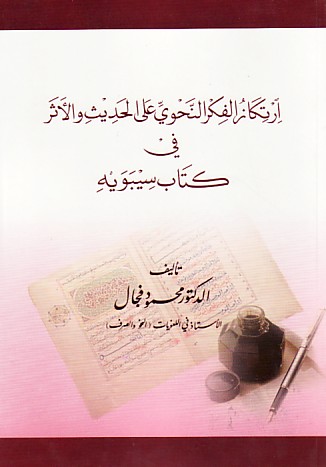 اِرْتِكَازُ الفِكْرِ النَّحْوِيِّ عَلَى الحَدِيثِ وَالأَثَرِ
فِي
كِتَابِ سِيْبَوَيْهِ
تأليف
الدكتور محمود فجال
الأستاذ في اللغويات (النحو والصرف)